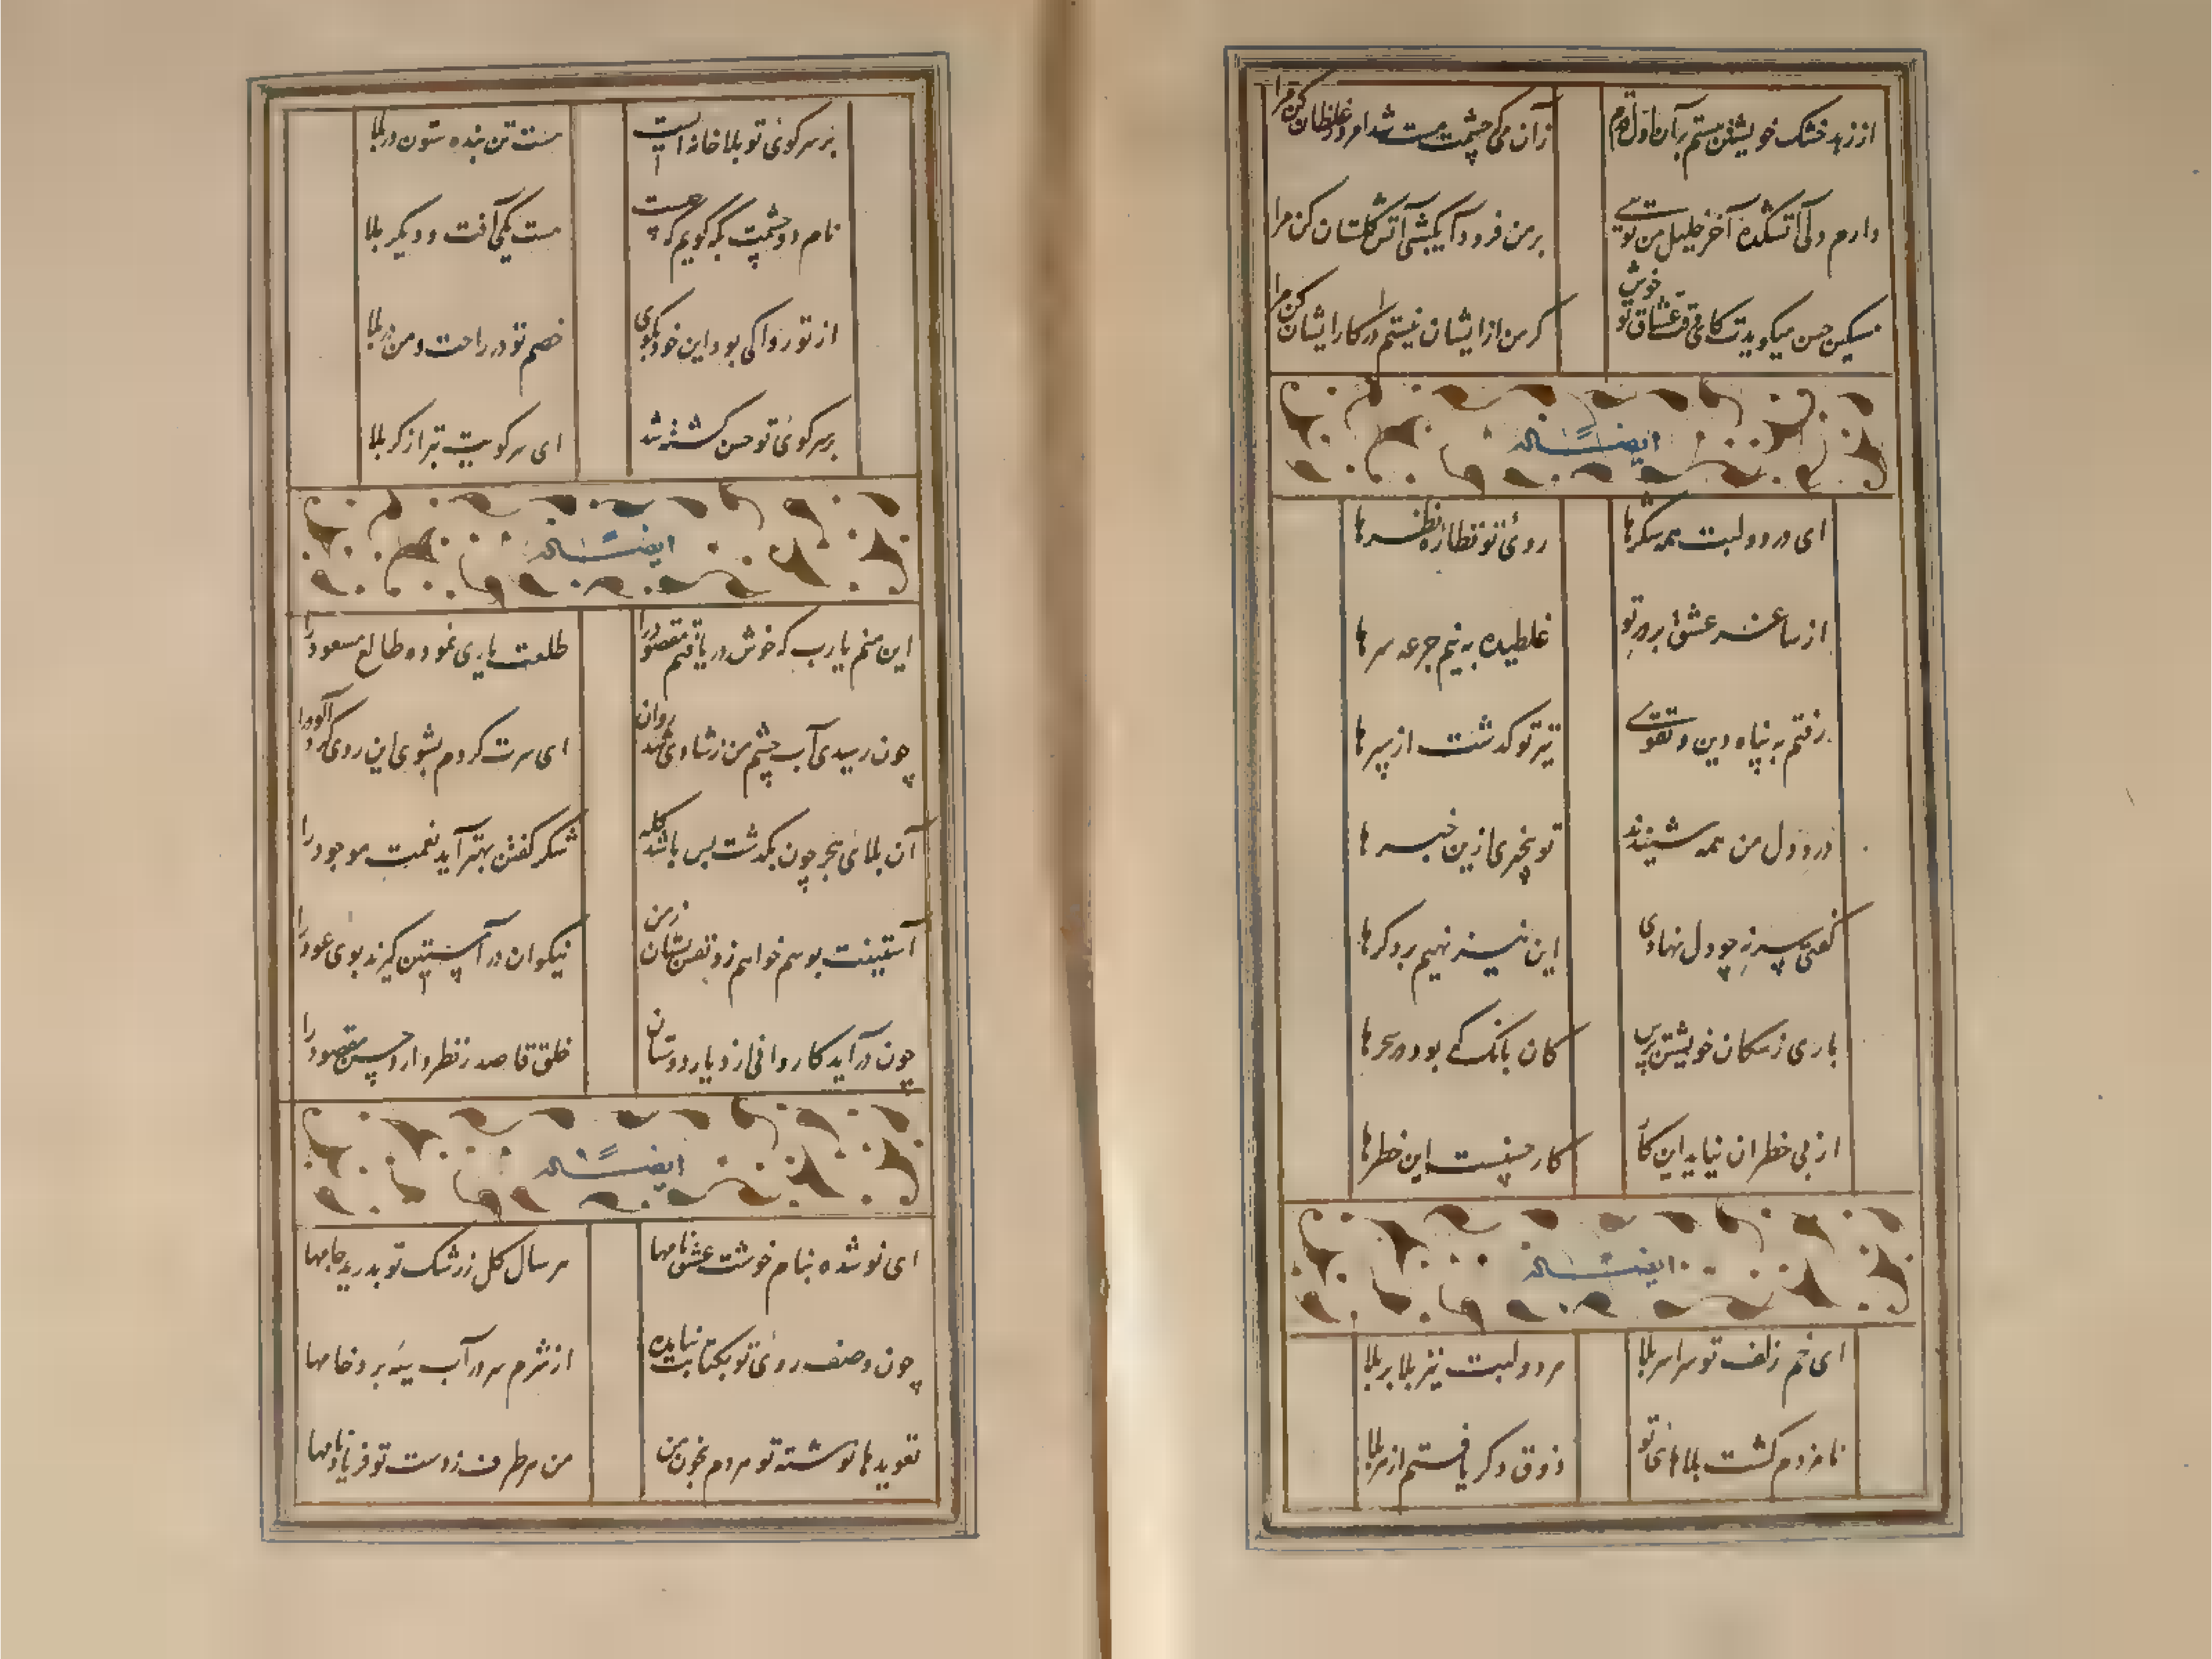 از زهد خشک خویشتن مستم بر آن اول قدم
زان می که چشمت مست شد امروز غلطان کن مرا
دارم دلی آتشکده آخر خلیل من توئی
بر من فرود آ یکشبی آتش گلستان کن مرا
مسکین حسن میگویدت کای وقت عشاق تو خوش
گر من از ایشان نیستم در کار ایشان کن مرا
ایضاً له
ای در دو لبت همه شکرها
روی تو نظاره نظرها
از ساغر عشق بر در تو
غلطیده به نیم جرعه سرها
رفتم به پناه دین و تقوی
تیر تو گذشت از سپرها
درد دل من همه شنیدند
تو بیخبری ازین خبرها
گفتی سر نه چو دل نهادی
این نیز نهیم بر دگرها
باری ز سگان خویشتن پرس
کان بانگ که بود در سحرها
از بی خطران نیاید این کار
کار حسنست این خطرها
ایضاً له
ای خم زلف تو سراسر بلا
هر دو لبت نیز بلا بر بلا
نامزدم گشت بلاهای تو
ذوق دگر یافتم از هر بلا
بر سر کوی تو بلا خانه ایست
هست تن بنده ستون در بلا
نام دو چشمت بکه گویم که چیست
هست یکی آفت و دیگر بلا
از تو روا کی بود این خود بگوی
خصم تو در راحت و من در بلا
بر سر کوی تو حسن کشته شد
ای سر کویت بتر از کربلا
ایضاً له
این منم یارب که خوش دریافتم مقصود را
طلعت یاری نموده طالع مسعود را
چون رسیدی آب چشم من ز شادی شد روان
ای سرت گردم بشوی این روی گرد آلود را
آن بلای هجر چون بگذشت بس باشد گله
شکر گفتن بهتر آید نعمت موجود را
آستینت بوسم خواهم زد نفس بستان ز من
نیکوان در آستین گیرند بوی عود را
چون در آید کاروانی از دیار دوستان
خلق قاصد در نظر دارد حسن مقصود را
ایضاً له
ای نو شده بنام خوشت عشق نامها
هر سال گل ز رشک تو بدریده جامها
چون وصف روی تو بکتابت نیایده
از شرم سر در آب سیه برد خامها
تعویذها نوشته تو مردم بخون من
من هر طرف ز دست تو فریاد نامها